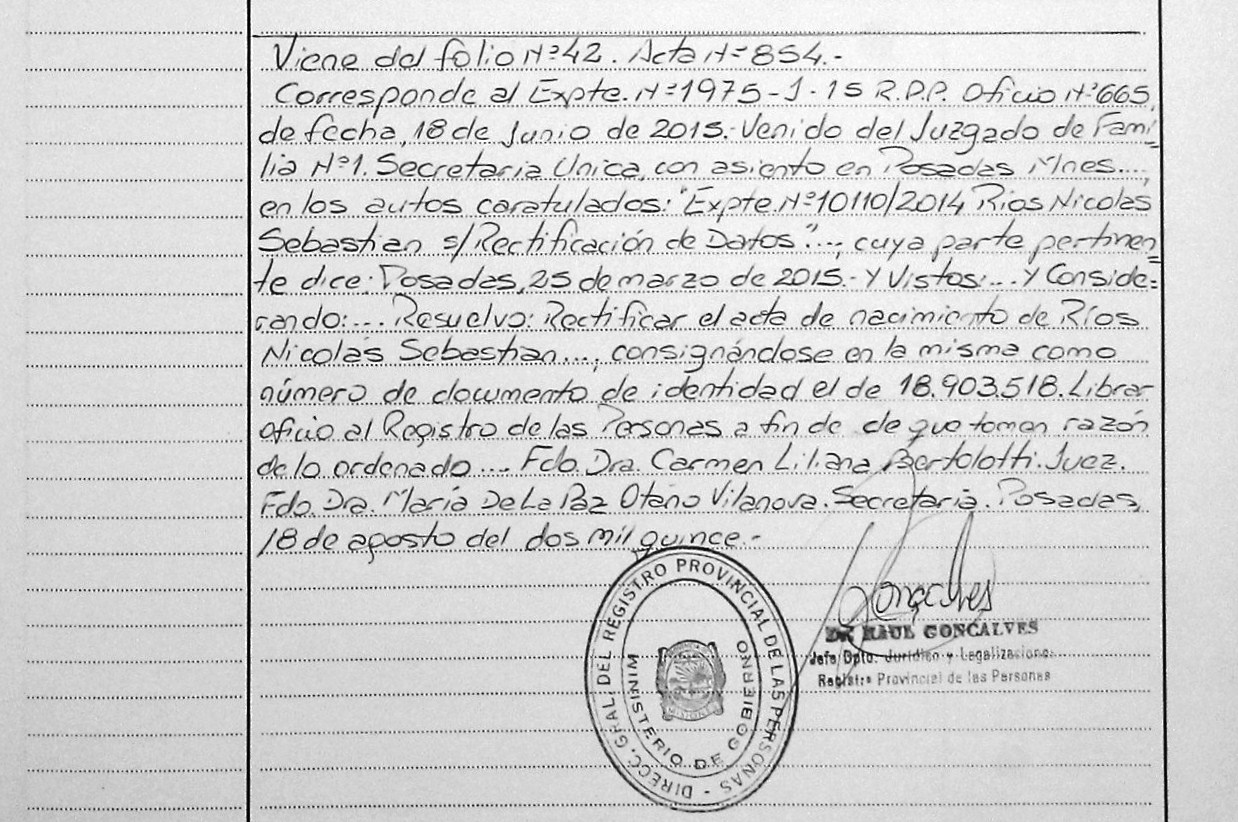 Viene del folio Nº 42. Acta Nº 854.-
Corresponde al Expte. Nº 1975-J-15 R.P.P. Oficio Nº 665,
de fecha, 18 de Junio de 2015.- Venido del Juzgado de Fami=
lia Nº 1. Secretaria Unica, con asiento en Posadas Mnes....,
en los autos caratulados: "Expte. Nº 10110/2014 Ríos Nicolás
Sebastian s/Rectificación de Datos"..., cuya parte pertinen=
te dice: Posadas, 25 de marzo de 2015.- Y Vistos:... Y Conside=
rando:... Resuelvo: Rectificar el acta de nacimiento de Ríos
Nicolás Sebastian..., consignándose en la misma como
número de documento de identidad el de 18.903.518. Librar
oficio al Registro de las Personas a fin de de que tomen razón
de lo ordenado.... Fdo. Dra. Carmen Liliana Bertolotti. Juez.
Fdo. Dra. María De La Paz Otaño Vilanova. Secretaria. Posadas,
18 de agosto del dos mil quince.-
DIRECC. GRAL. DEL REGISTRO PROVINCIAL DE LAS PERSONAS -
MINISTERIO DE GOBIERNO
MISIONES
Goncalves
Dr RAUL GONCALVES
Jefe Dpto. Jurídico y Legalizaciones
Registro Provincial de las Personas